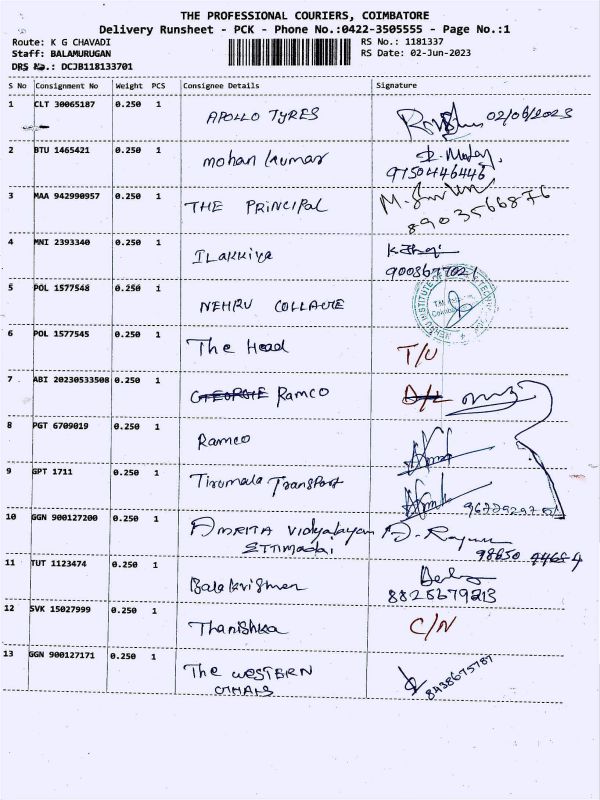 THE PROFESSIONAL COURIERS, COIMBATORE
Delivery Runsheet - PCK - Phone No.:0422-3505555 - Page No.:1
Route: K G CHAVADI RS No.: 1181337
Staff: BALAMURUGAN RS Date: 02-Jun-2023
DRS No.: DCJB118133701
S No Consignment No Weight PCS Consignee Details Signature
1 CLT 30065187 0.250 1 APOLLO TYRES 02/06/2023
2 BTU 1465421 0.250 1 mohan kumar
9750446446
3 MAA 942990957 0.250 1 THE PRINCIPAL
8903566876
4 MNI 2393340 0.250 1 ILAKKIYA
9003677021
5 POL 1577548 0.250 1 NEHRU COLLAGE
6 POL 1577545 0.250 1 The Head T/U
7 ABI 20230533508 0.250 1 GEORGIE Ramco D/L
8 PGT 6709019 0.250 1 Ramco
9 GPT 1711 0.250 1 Tirumala Transport
10 GGN 900127200 0.250 1 AMRITA Vidyalayam
ETTIMADAI
11 TUT 1123474 0.250 1 Balakrishnan
8825679213
12 SVK 15027999 0.250 1 Thanishka C/N
13 GGN 900127171 0.250 1 The WESTERN
8438675787